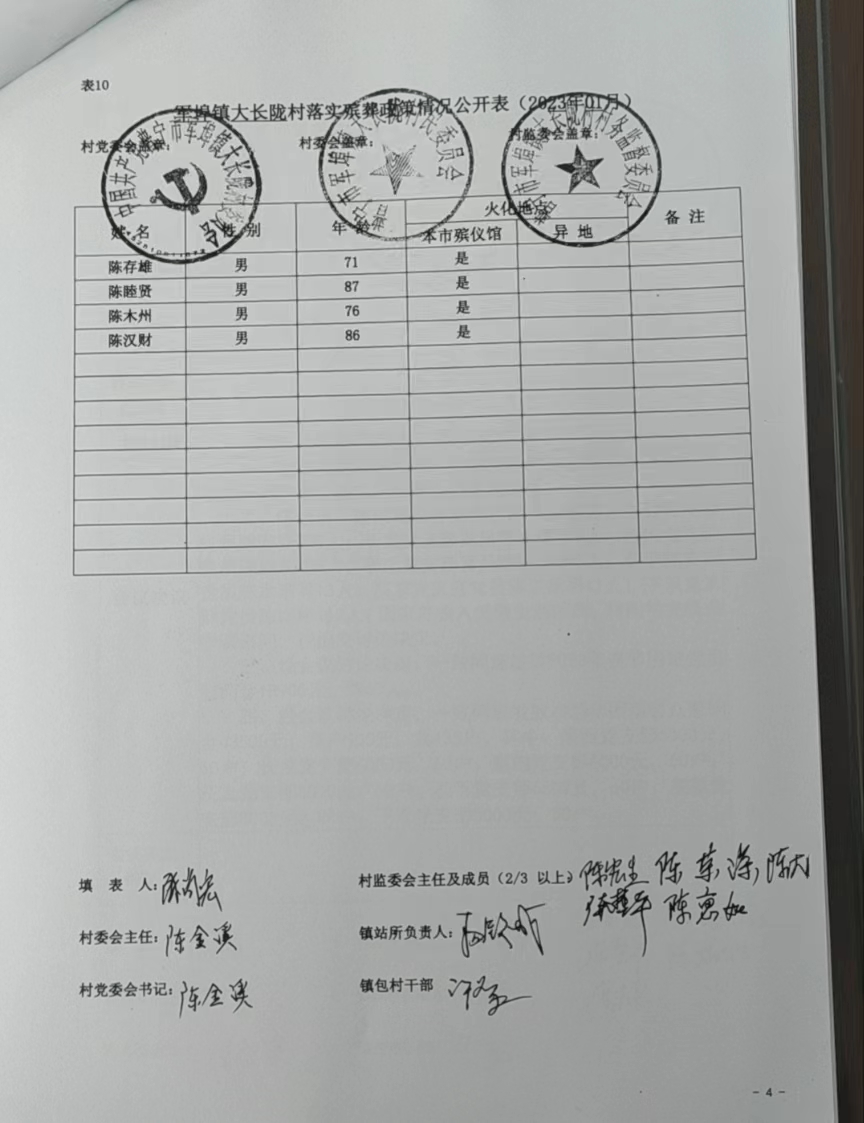 表10
军埠镇大长陇村落实殡葬政策情况公开表（2023年01月）
村党委会盖章： 村委会盖章： 村监委会盖章：
中国共产党普宁市军埠镇大长陇村委员会
普宁市军埠镇大长陇村村民委员会
普宁市军埠镇大长陇村村务监督委员会
姓 名 性 别 年 龄 火化地点 备 注
本市殡仪馆 异 地
陈存雄 男 71 是
陈睦贤 男 87 是
陈木州 男 76 是
陈汉财 男 86 是
填 表 人：
村监委会主任及成员（2/3 以上）
陈惠如
村委会主任：陈金溪
镇站所负责人：
村党委会书记：陈金溪
镇包村干部
- 4 -